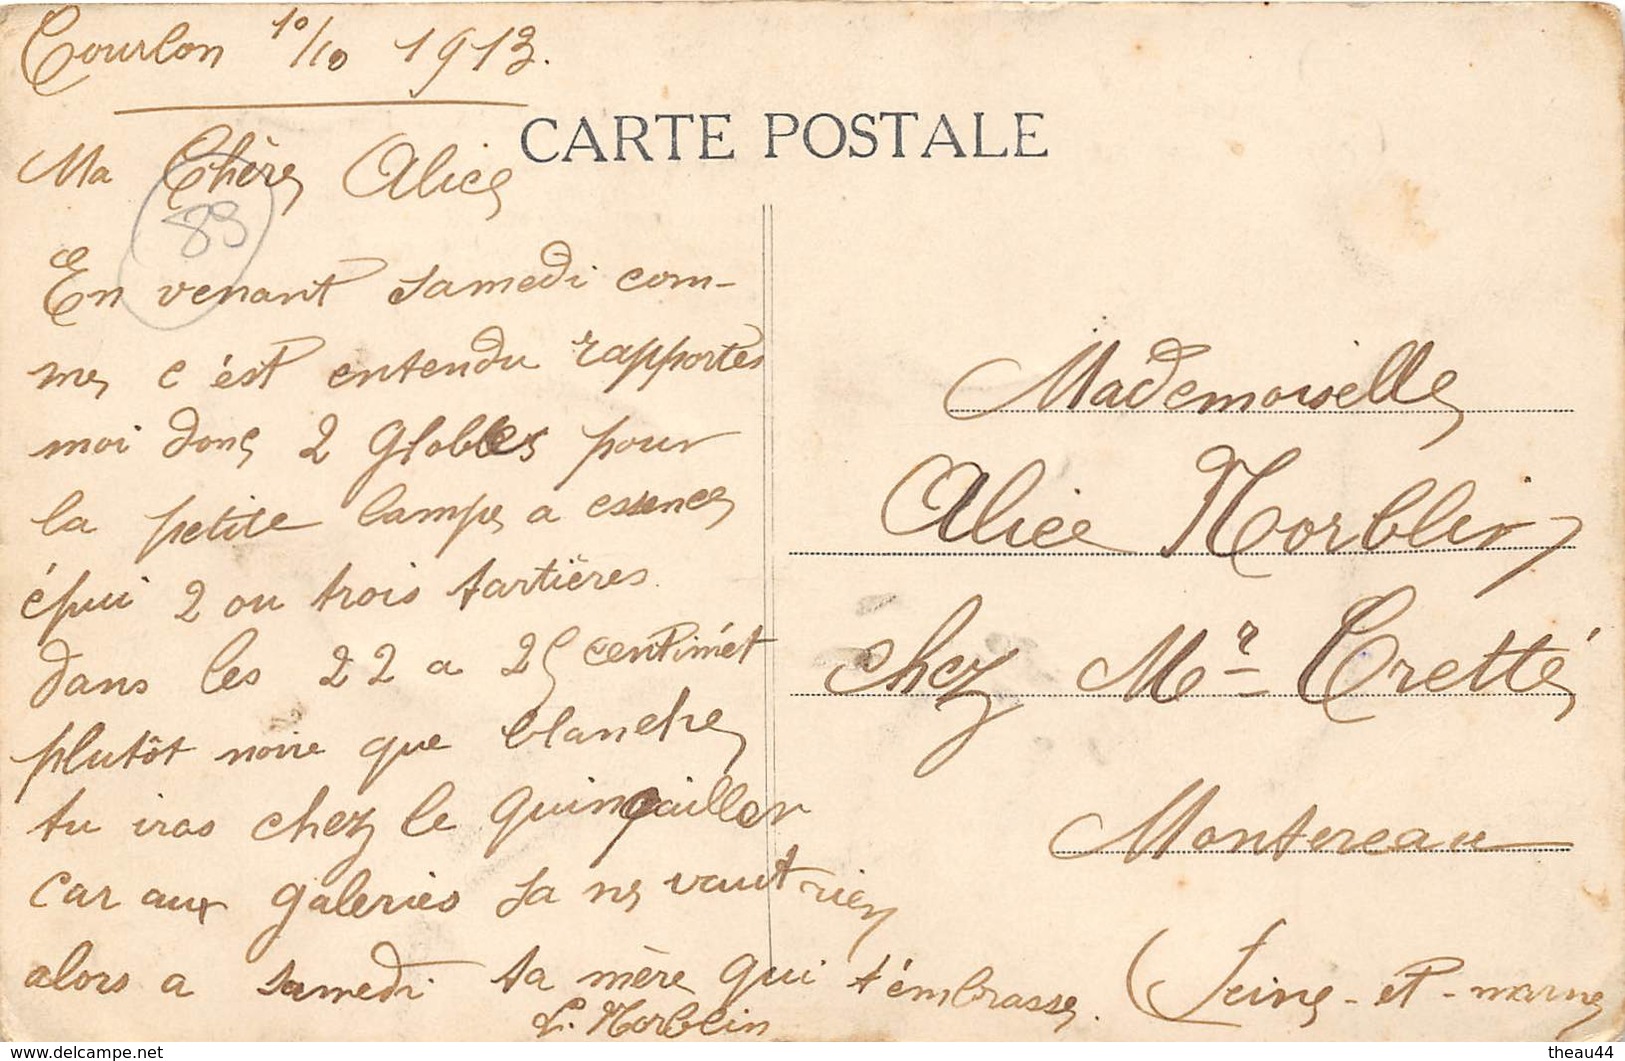 Courlon 10/10 1913.
CARTE POSTALE
Ma Chère Alice
83
En venant samedi com-
me c'est entendu rapportes
moi donc 2 Globles pour
la petite lampe a essence
épui 2 ou trois tartières
dans les 22 a 25 centimét
plutôt noire que blanche
tu iras chez le quinqailler
car aux galeries sa ne vaut rien
alors a samedi ta mère qui t'émbrasse.
L. Norblin
Mademoiselle
Alice Norblin
chez Mr Cretté
Montereau
(Seine-et-marne
theau44